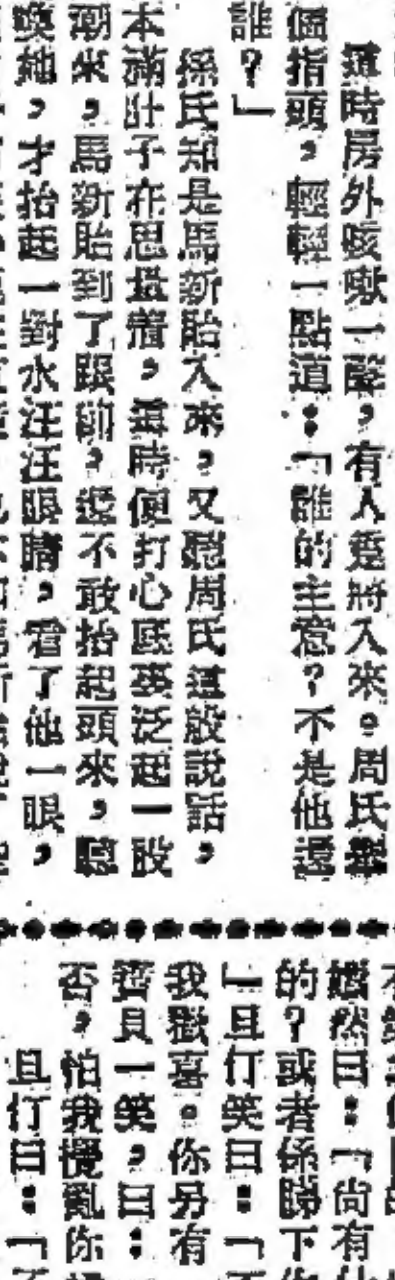 這時房外咳嗽一聲，有人逕將入來。周氏舉
個指頭，輕輕一點道：「誰的主意？不是他還
誰？」
孫氏知是馬新貽入來，又聽周氏這般說話，
本滿肚子在思量着，這時便打心底裏泛起一股
潮來，馬新貽到了跟前，還不敢抬起頭來，聽
喚她，才抬起一對水汪汪眼睛，看了他一眼，
嫣然曰：「尚有
的？或者係勝下
」且仃笑曰：「
我歡喜。你另有
齊貝一笑，曰：
否，怕我攪亂你
且仃曰：「